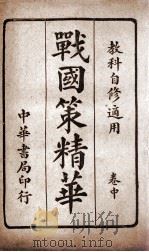 教科自修適用
卷中
戰國策精華
中華書局印行
mtoou.info